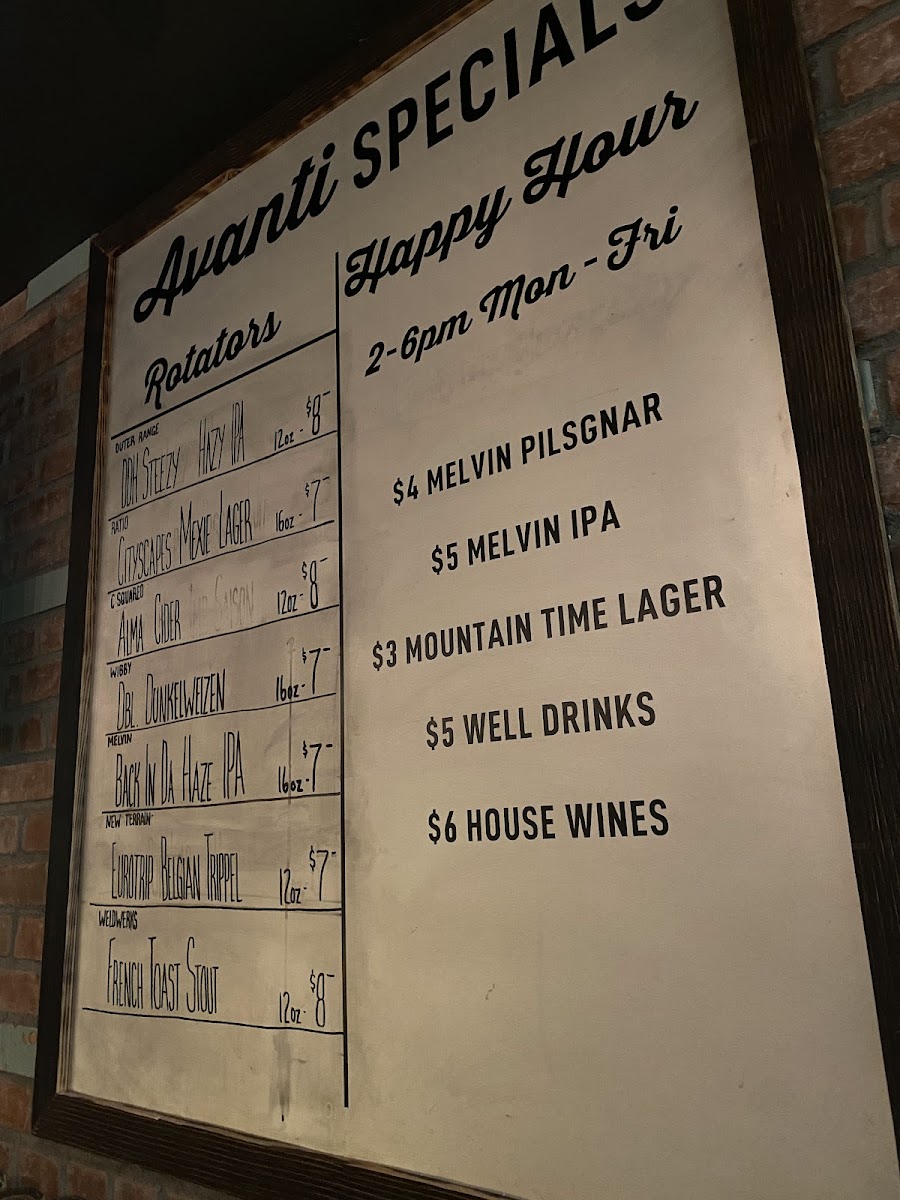 Avanti SPECIALS
Rotators
OUTER RANGE
DDH STEEZY HAZY IPA 12oz - $8-
RATIO
CITYSCAPES MEXIE LAGER 16oz - $7-
C SQUARED
ALMA CIDER 12oz - $8-
WIBBY
DBL. DUNKELWEIZEN 16oz - $7-
MELVIN
BACK IN DA HAZE IPA 16oz - $7-
NEW TERRAIN
EUROTRIP BELGIAN TRIPPEL 12oz - $7-
WELDWERKS
FRENCH TOAST STOUT 12oz - $8-
Happy Hour
2-6pm Mon - Fri
$4 MELVIN PILSGNAR
$5 MELVIN IPA
$3 MOUNTAIN TIME LAGER
$5 WELL DRINKS
$6 HOUSE WINES